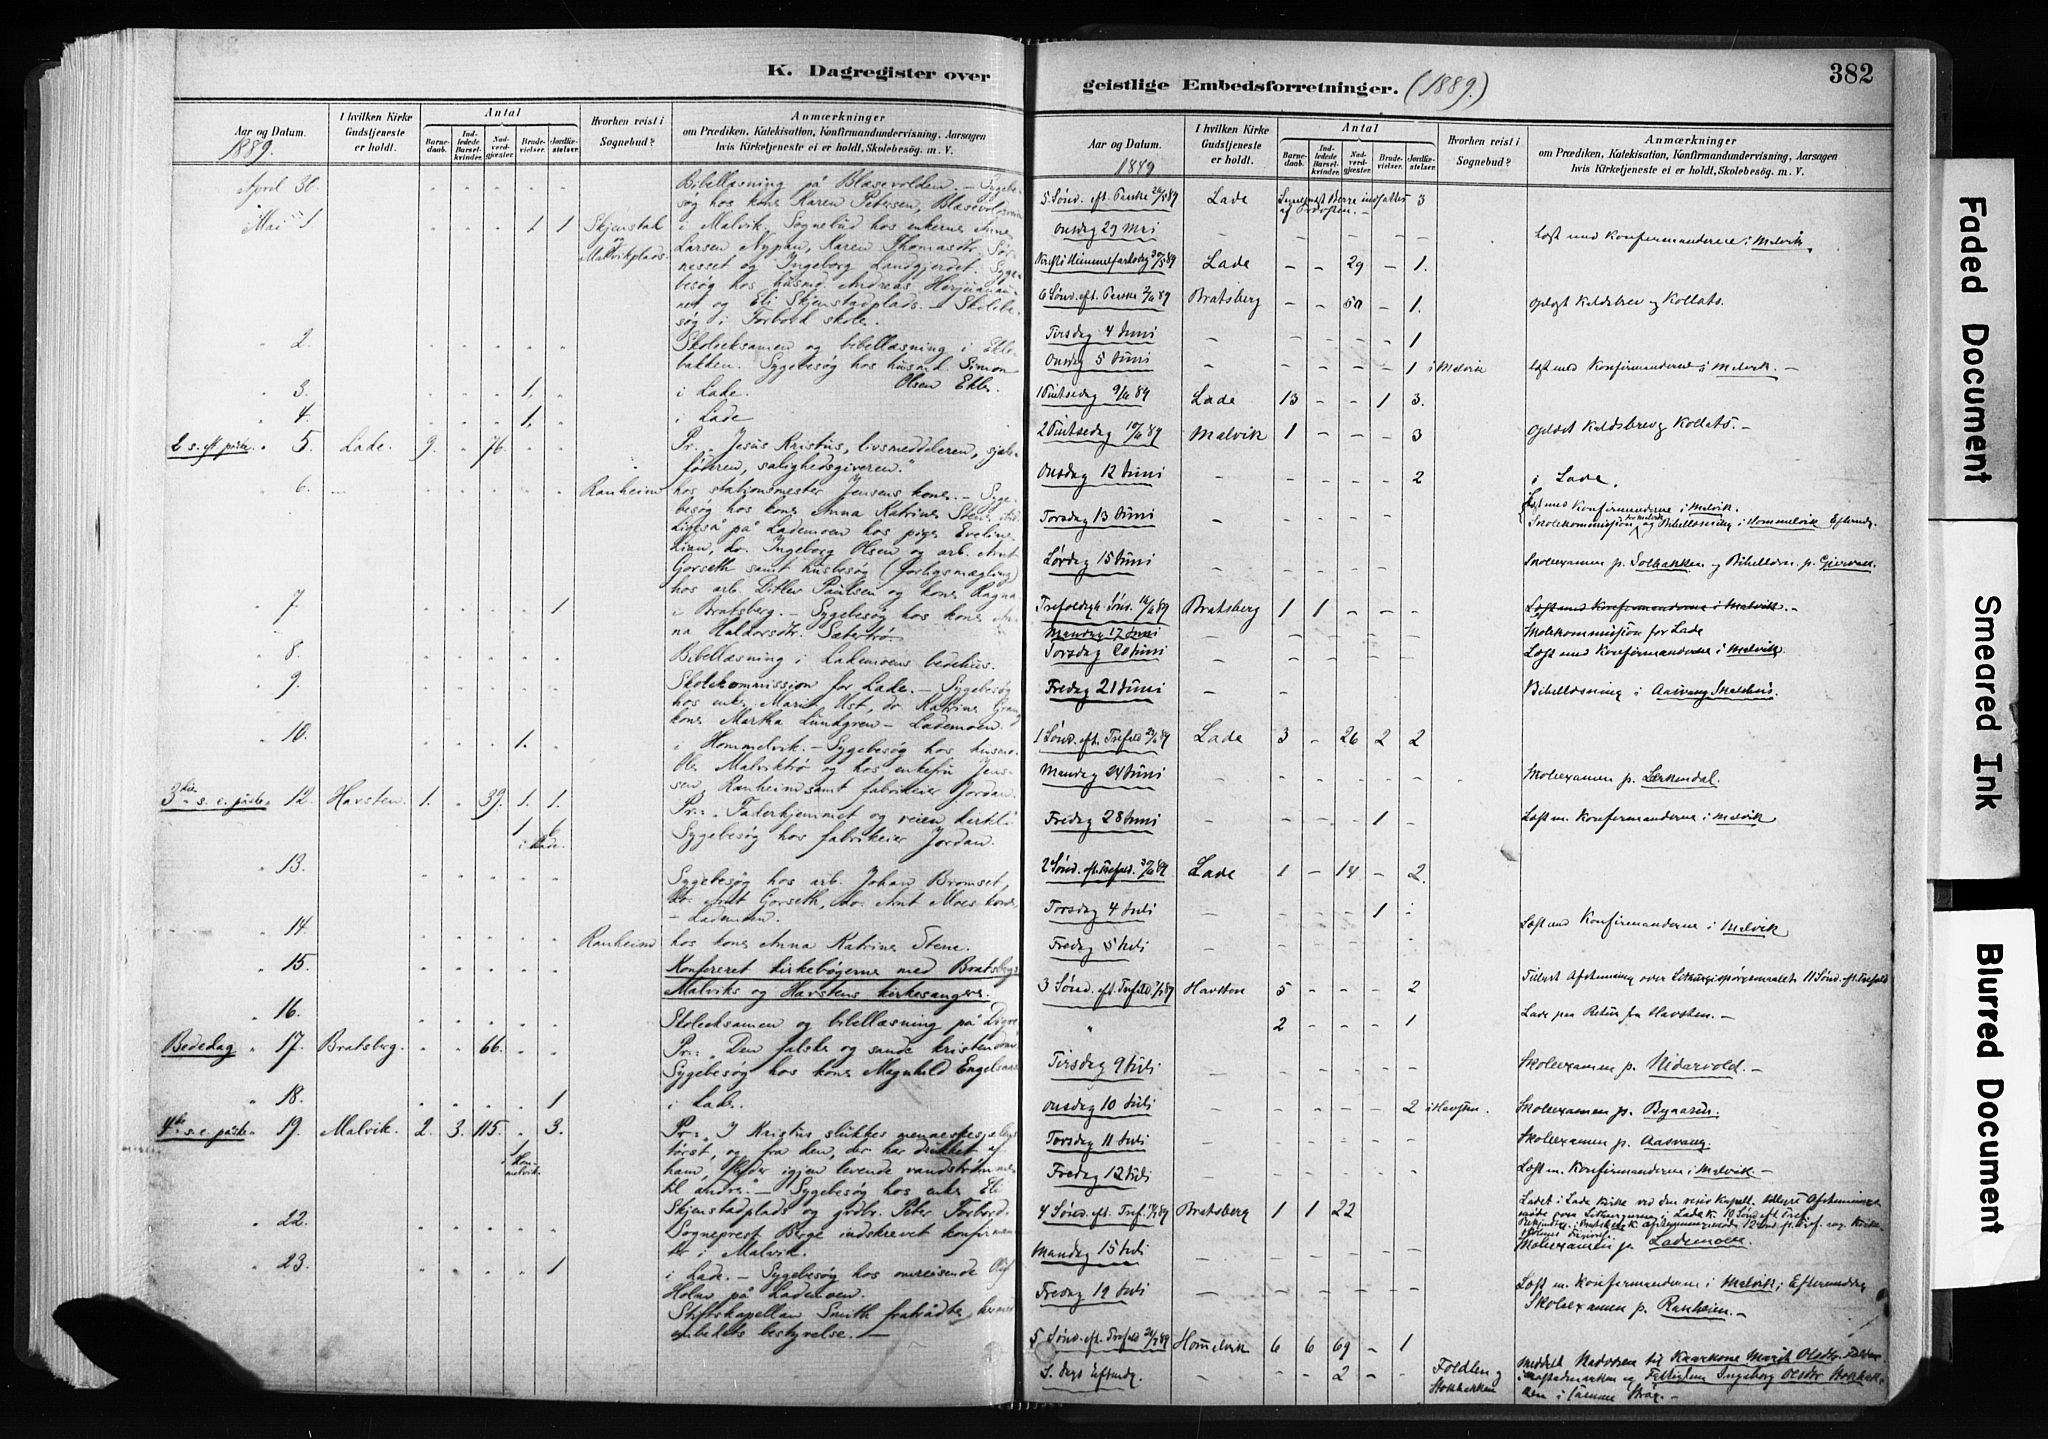 K. Dagregister over
Aar og Datum.
1889.
I hvilken Kirke Gudstjeneste er holdt.
Antal
Barnedaab.
Indledede Barselkvinder.
Nadverdgjester.
Brudevielser.
Jordfæstelser.
Hvorhen reist i Sognebud?
Anmærkninger
om Prædiken, Katekisation, Konfirmandundervisning, Aarsagen
hvis Kirketjeneste ei er holdt, Skolebesøg. m. V.
April 30. Bibellæsning på Blæsevolden. – Sygebe-
søg hos kone Karen Petersen, Blæsevolden
Mai 1 1 1 Skjenstad i Malvik. Sognebud hos enkerne Anne
Larsen Nypan, Karen Thomasdtr. Sør-
Malvikplads. nesset og Ingeborg Landgjerdet. Syge-
besøg hos husmd. Andreas
net og Eli Skjenstadplads. – Skolebe-
søg i Forbord skole.
2. Skoleeksamen og bibellæsning i Ekle-
bakken. Sygebesøg hos husmd. Simon
Olsen Ekle.
3. 1. i Lade.
4. 1. i Lade
2 s. ef. påske 5. Lade. 9. 76. Pr. „Jesus Kristus, livsmeddeleren, sjæle-
føderen, salighedsgiveren."
6. Ranheim hos stationsmester Jensens kone. – Syge-
besøg hos kone Anna Katrine Stene
Ligeså på Lademoen hos pige Eveline
Lian, do. Ingeborg Olsen og arb. Arnt
Gorseth samt husbesøg (forligsmægling)
hos arb. Ditlev Paulsen og kone Ragna
7. 1 i Bratsberg. – Sygebesøg hos kone An-
na Haldorsdtr. Sætertrø
8. Bibellæsning i Lademoens bedehus.
9. Skolekommission for Lade. – Sygebesøg
hos enke Marit Ust, do. Katrine Gran
kone Martha Lundgren – Lademoen.
10. 1. i Hommelvik. – Sygebesøg hos husm.
Ole Malviktrø og hos enkefru Jens-
sen, Ranheim samt fabrikeier Jordan.
3die s. e. påske 12. Havsten. 1. 39. 1. 1. Pr.: „Faderhjemmet og veien dertil"
1 6 i Lade. Sygebesøg hos fabrikeier Jordan.
13. Sygebesøg hos arb. Johan Bromset,
do. Arnt Gorseth, do. Arnt Moes kone,
– Lademoen.
14. Ranheim hos kone Anna Katrine Stene.
15. Konfereret kirkebøgerne med Bratsbergs
Malviks og Havstens kirkesangere.
16. Skoleeksamen og bibellæsning på Digre
Bededag 17. Bratsberg. 66. Pr.: „Den falske og sande kristendom
Sygebesøg hos kone Magnhild Engelsaas
18. 1 i Lade.
4de s. e. påske 19. Malvik. 2. 3. 115. 3. Pr.: „I Kristus slukkes menneskesjelens
1 i Hommelvik. tørst, og fra den, der har drukket af
ham, flyder igjen levende vandstrømme
til andre." – Sygebesøg hos enke Eli
Skjenstadplads og grdbr. Peter Forbord.
22. Sogneprest Berge indskrevet konfirman-
der i Malvik.
23. 1 i Lade. – Sygebesøg hos omreisende
Holm på Lademoen.
Stiftskapellan Smith fratrådte hermed
embedets bestyrelse. –
geistlige Embedsforretninger. (1889.)
382
Aar og Datum.
1889
I hvilken Kirke Gudstjeneste er holdt.
Antal
Barnedaab.
Indledede Barselkvinder.
Nadverdgjester.
Brudevielser.
Jordfæstelser.
Hvorhen reist i Sognebud?
Anmærkninger
om Prædiken, Katekisation, Konfirmandundervisning, Aarsagen
hvis Kirketjeneste ei er holdt, Skolebesøg. m. V.
5 Sønd. eft. Paaske 26/5 89 Lade Sogneprest Berge indsattes af Provsten. – 3
Onsdag 29 Mai – – – – – – Læst med Konfirmanderne i Malvik.
Kristi Himmelfartsdag 30/5 89 Lade – – 29 – 1.
6 Sønd. eft. Paaske 2/6 89 Bratsberg – – 50 – 1. Oplæst Kaldsbrev og Kollats.
Tirsdag 4 Juni – – – – – 1
Onsdag 5 Juni – – – – – 1 i Malvik Læst med Konfirmanderne i Malvik. –
1 Pintsedag 9/6 89 Lade 13 – – 1 3.
2 Pintsedag 10/6 89 Malvik 1 – – – 3 Oplæst Kaldsbrev og Kollats. –
Onsdag 12 Juni – – – – – 2 i Lade.
Torsdag 13 Juni – – – – – – Læst med Konfirmanderne i Malvik.
Skolekommission for Malvik og Bibellæsning i Hommelvik Efterm.
Lørdag 15 Juni – – – – – – Skoleexamen p. Solbakken og Bibellæsn. p. Gjervan.
Trefoldigh. Sønd. 16/6 89 Bratsberg 1 1 – – – Læst med Konfirmanderne i Malvik. –
Mandag 17 Juni Skolekommission for Lade
Torsdag 20 Juni – – – – – – Læst med Konfirmanderne i Malvik.
Fredag 21 Juni – – – – – – Bibellæsning i Aasvang Skolehus.
1 Sønd. eft. Trefold. 23/6 89 Lade 3 – 26 2 2
Mandag 24 Juni – – – – – Skoleexamen p. Lerkendal.
Fredag 28 Juni – – – – 1 – Læst m. Konfirmanderne i Malvik
2 Sønd. eft. Trefold. 30/6 89 Lade 1 – 14 – 2.
Torsdag 4 Juli – – – – 1
Fredag 5 Juli – – – – – Læst med Konfirmanderne i Malvik
3 Sønd. eft. Trefold. 7/7 89 Havsten 5 – – – 2 Tillyst Afstemning over Liturgispørgsmaalet 11 Sønd. eft. Trefold
" 2 – – – 1 Lade paa Retur fra Havsten. –
Tirsdag 9 Juli – – – – – – Skoleexamen p. Nidarvold. –
Onsdag 10 Juli – – – – – 2 i Havsten. Skoleexamen p. Byaasen.
Torsdag 11 Juli – – – – – – Skoleexamen p. Aasvang.
Fredag 12 Juli – – – – – – Læst m. Konfirmanderne i Malvik –
4 Sønd. eft. Tref. 14/7 89 Bratsberg 1 1 22
Mandag 15 Juli – – – – – – Skoleexamen p. Lademoen.
Fredag 19 Juli – – – – – – Læst m. Konfirmanderne i Malvik; Eftermiddag
Skoleexamen p. Ranheim. –
5 Sønd. eft. Trefold 21/7 89 Hommelvik 6 6 69 – 1
S. Dags Efterm. – – – 2 – – Foldlen og Stokbakken Meddelt Nadveren til Kaarkone Marit Olsdtr. Folden
og Ingeborg Olsdtr Stokbak-
ken i samme Strøg. –
Faded Document
Smeared Ink
Blurred Document